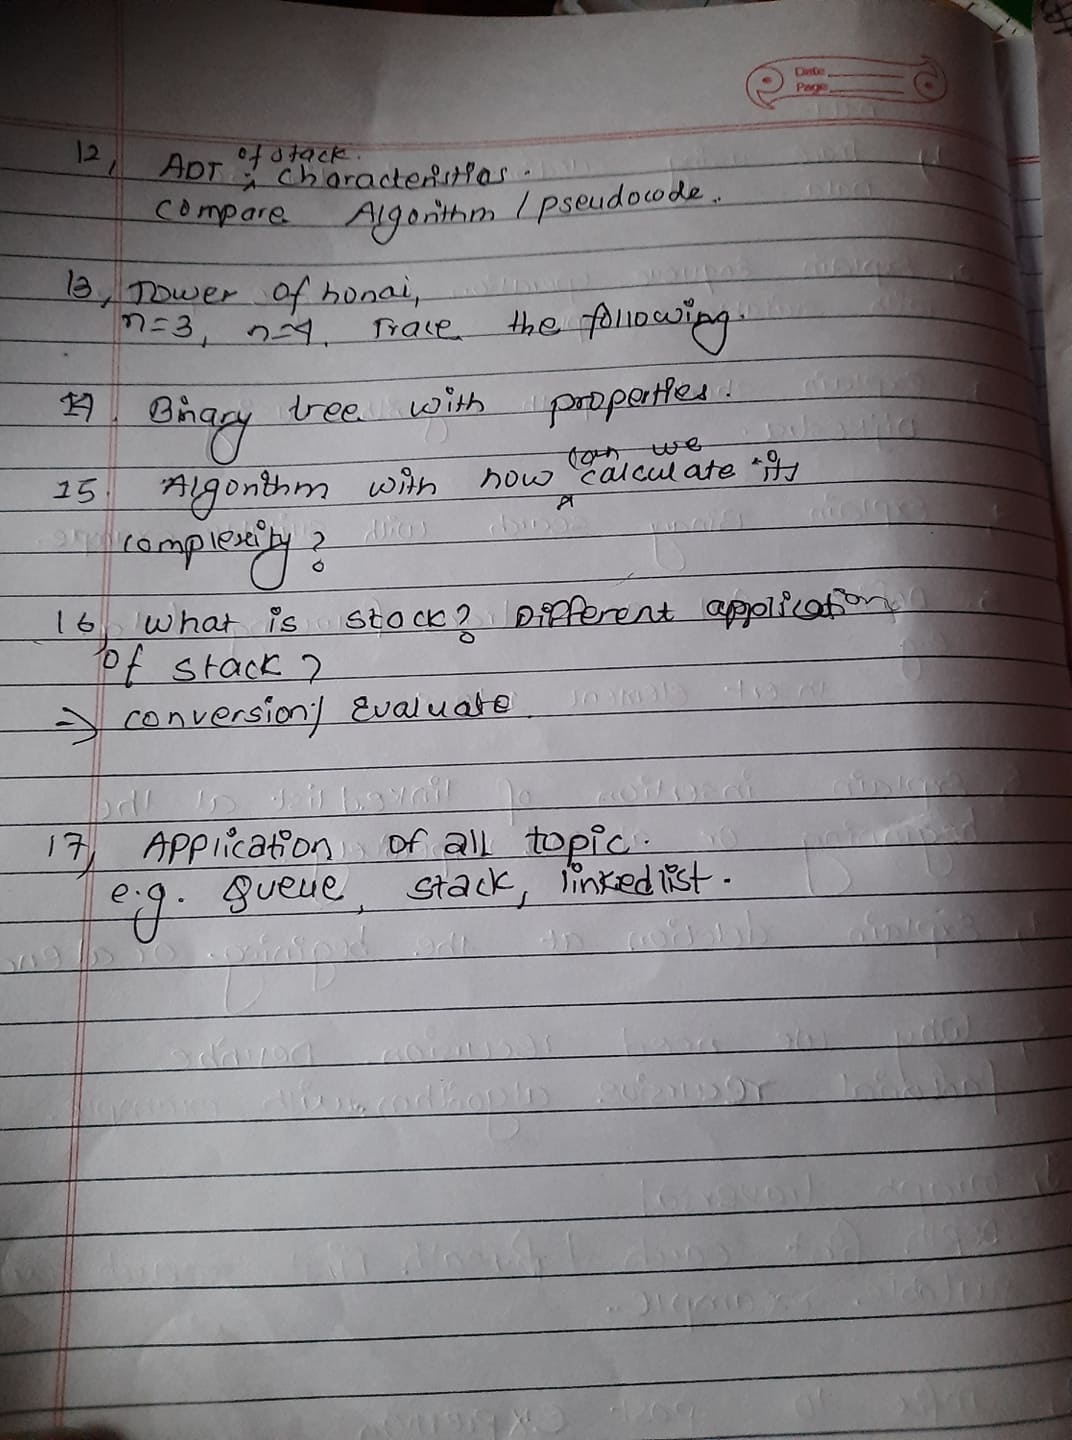 Date
Page
12, ADT of stack. characteristics.
compare Algorithm / pseudocode.
13, Tower of honai,
n=3, n=4. Trace the following.
14. Binary tree with properties.
15. Algorithm with how can we calculate its
complexity?
16, what is stack? Different application
of stack?
⇒ conversion/ Evaluate.
17, Application of all topic.
e.g. Queue, stack, linked list.